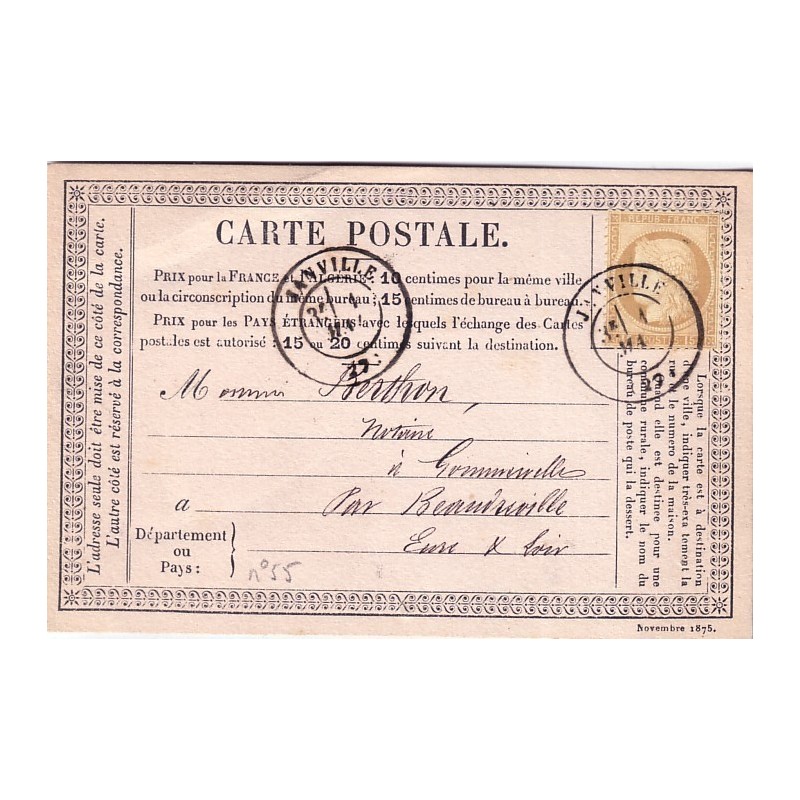 CARTE POSTALE.
PRIX pour la FRANCE et l'ALGÉRIE: 10 centimes pour la même ville
ou la circonscription du même bureau; 15 centimes de bureau à bureau.
PRIX pour les PAYS ÉTRANGERS avec lesquels l'échange des Cartes
postales est autorisé: 15 ou 20 centimes suivant la destination.
REPUB FRANC
JANVILLE
JANVILLE
Monsieur Berthon,
Notaire
à Gommerville
à Par Beaudreville
Eure & Loir
Département
ou
Pays:
n°55
L'adresse seule doit être mise de ce côté de la carte.
L'autre côté est réservé à la correspondance.
Lorsque la carte est à destination
d'une ville, indiquer très-exactement la
rue et le numéro de la maison.
Quand elle est destinée pour une
commune rurale, indiquer le nom du
bureau de poste qui la dessert.
Novembre 1875.